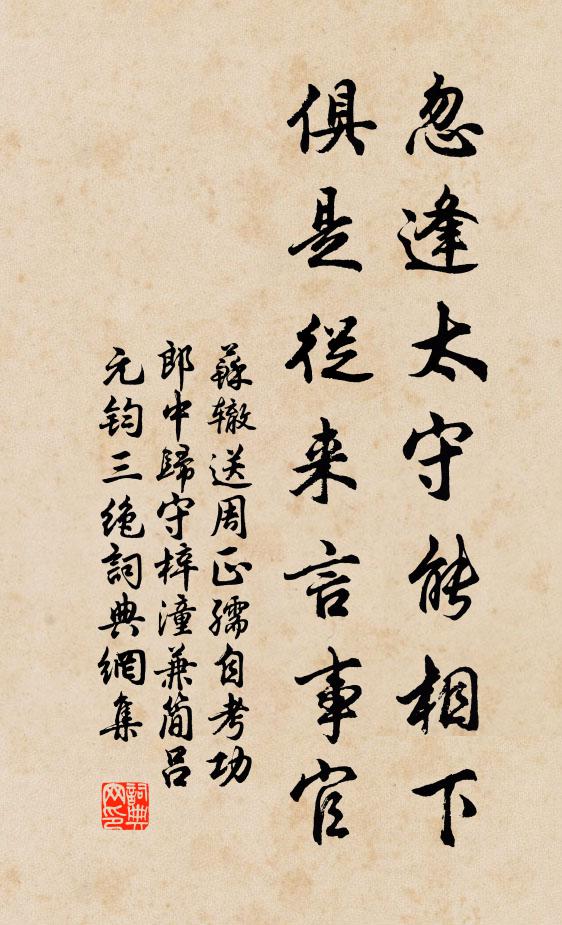 忽逢太守能相下
俱是從来言事官
蘇辙送周正孺自考功
郎中歸守梓潼兼简吕
元钧三绝詞典網集
詞典
网印